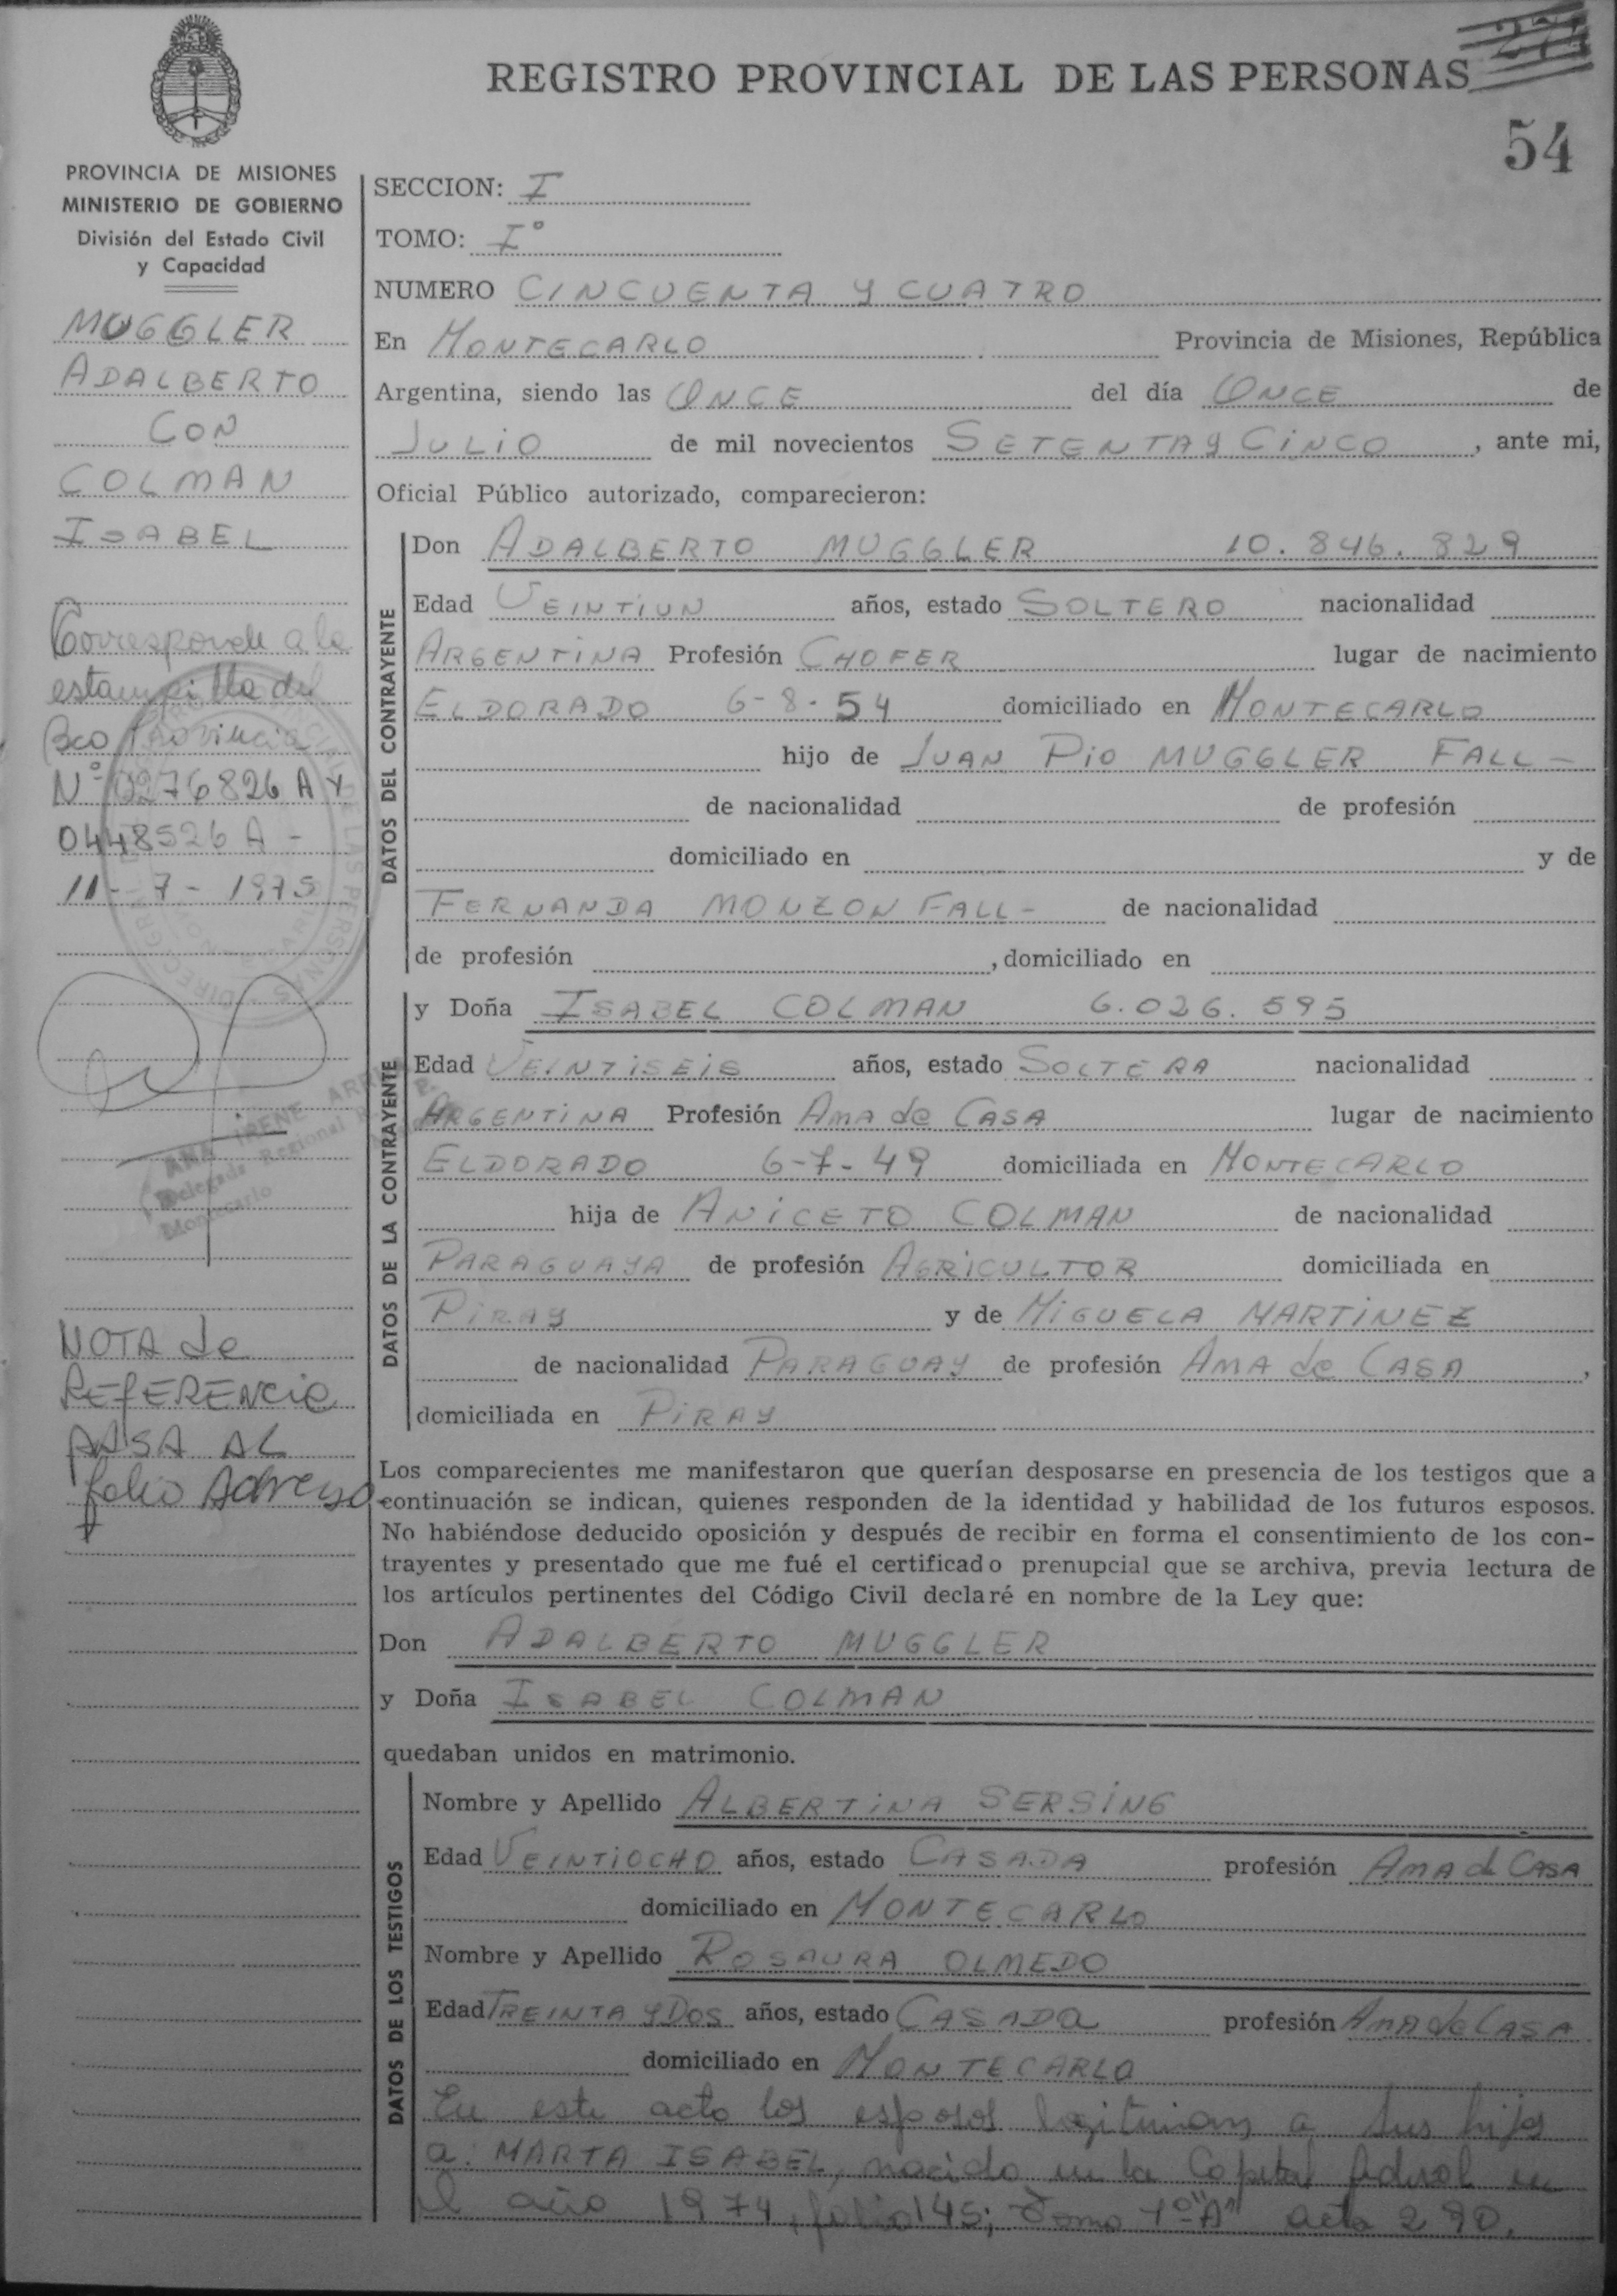 REGISTRO PROVINCIAL DE LAS PERSONAS
54
PROVINCIA DE MISIONES
MINISTERIO DE GOBIERNO
División del Estado Civil
y Capacidad
MUGGLER
ADALBERTO
CON
COLMAN
ISABEL
Corresponde a la
estampilla del
Bco Provincia
Nº 0276826 A y
0448526 A -
11 - 7 - 1975
ANA IRENE
Delegada Regional
Montecarlo
NOTA de
REFERENCIA
PASA AL
folio Adverso
SECCION: I
TOMO: Iº
NUMERO CINCUENTA Y CUATRO
En MONTECARLO Provincia de Misiones, República
Argentina, siendo las ONCE del día ONCE de
JULIO de mil novecientos SETENTA y CINCO, ante mi,
Oficial Público autorizado, comparecieron:
DATOS DEL CONTRAYENTE
Don ADALBERTO MUGGLER 10.846.829
Edad VEINTIUN años, estado SOLTERO nacionalidad
ARGENTINA Profesión CHOFER lugar de nacimiento
ELDORADO 6-8-54 domiciliado en MONTECARLO
hijo de JUAN PIO MUGGLER FALL-
de nacionalidad de profesión
domiciliado en y de
FERNANDA MONZON FALL- de nacionalidad
de profesión , domiciliado en
DATOS DE LA CONTRAYENTE
y Doña ISABEL COLMAN 6.026.595
Edad VEINTISEIS años, estado SOLTERA nacionalidad
ARGENTINA Profesión AMA de CASA lugar de nacimiento
ELDORADO 6-7-49 domiciliada en MONTECARLO
hija de ANICETO COLMAN de nacionalidad
PARAGUAYA de profesión AGRICULTOR domiciliada en
PIRAY y de MIGUELA MARTINEZ
de nacionalidad PARAGUAY de profesión AMA de CASA ,
domiciliada en PIRAY
Los comparecientes me manifestaron que querían desposarse en presencia de los testigos que a
continuación se indican, quienes responden de la identidad y habilidad de los futuros esposos.
No habiéndose deducido oposición y después de recibir en forma el consentimiento de los con-
trayentes y presentado que me fué el certificado prenupcial que se archiva, previa lectura de
los artículos pertinentes del Código Civil declaré en nombre de la Ley que:
Don ADALBERTO MUGGLER
y Doña ISABEL COLMAN
quedaban unidos en matrimonio.
DATOS DE LOS TESTIGOS
Nombre y Apellido ALBERTINA SERSING
Edad VEINTIOCHO años, estado CASADA profesión AMA de CASA
domiciliado en MONTECARLO
Nombre y Apellido ROSAURA OLMEDO
Edad TREINTA y DOS años, estado CASADA profesión AMA de CASA
domiciliado en MONTECARLO
En este acto los esposos legitiman a sus hijos
a: MARTA ISABEL, nacida en la Capital federal en
el año 1974, folio 145; Tomo 1º "A" acta 290.